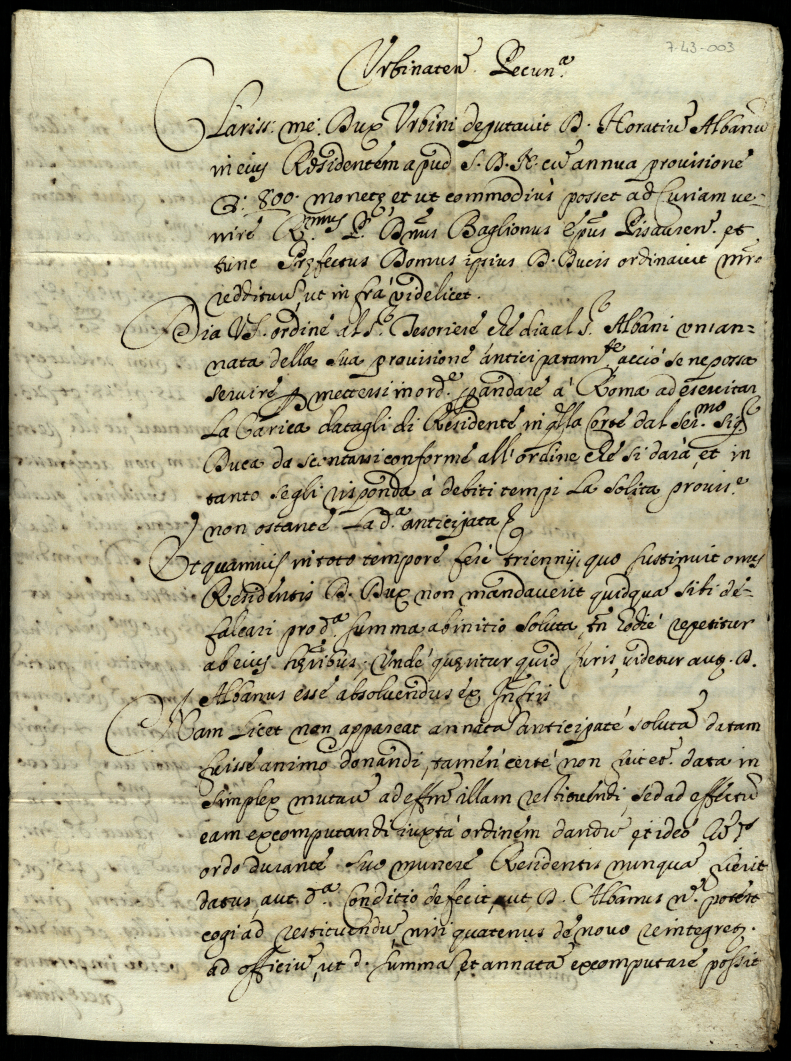 7-43-003
Urbinaten. Pecun.ª
Clariss: me: Dux Urbini deputavit D. Horatiũ Albanũ
in eius Residentem apud S. D. N. cũ annua provisione
800. monetę et ut commodius posset ad Curiam ve-
nire R.mus P. Dñus Baglionus Epũs Pisauren. et
tunc Pręfectus Domus ipsius D. Ducis ordinavit
reddituũ, ut infrà videlicet.
Dia VS. ordine al S.r Tesoriere che dia al S.r Albani un'an=
nata della sua provisione anticipatam.te, acciò se ne possa
servire p mettersi in ord.e p andare à Roma ad esercitar
La Carica datagli di Residente in q̃lla Corte dal Ser.mo Sig.r
Duca da scontarsi conforme all'ordine che si darà, et in
tanto se gli risponda à debiti tempi La solita provis.e
non ostante La d.ª anticipata
Et quamvis in toto tempore ferè triennij, quo sustinuit onus
Residentis D. Dux non mandaverit quidquã sibi de-
falcari pro d.ª summa ab initio soluta, tñ hodiè repetitur
ab eius hęredibus; Undè quęritur quid Juris, videtur aut. D.
Albanus esse absolvendus ex Infrtis
Nam Licet non appareat annatã anticipatè solutã datam
fuisse animo donandi, tamen certè non fuit data in
simplex mutuũ ad effm illam restituendi, sed ad effectũ
eam excomputandi iuxtà ordinem dandũ, et ideò
ordo durante suo munere Residentis nunquã fuerit
datus, aut. d.ª Conditio defecit, aut D. Albanus n. potest
cogi ad restituendũ nisi quatenus de novo reintegret.
ad officiũ, ut d. summã, et annatã excomputare possit